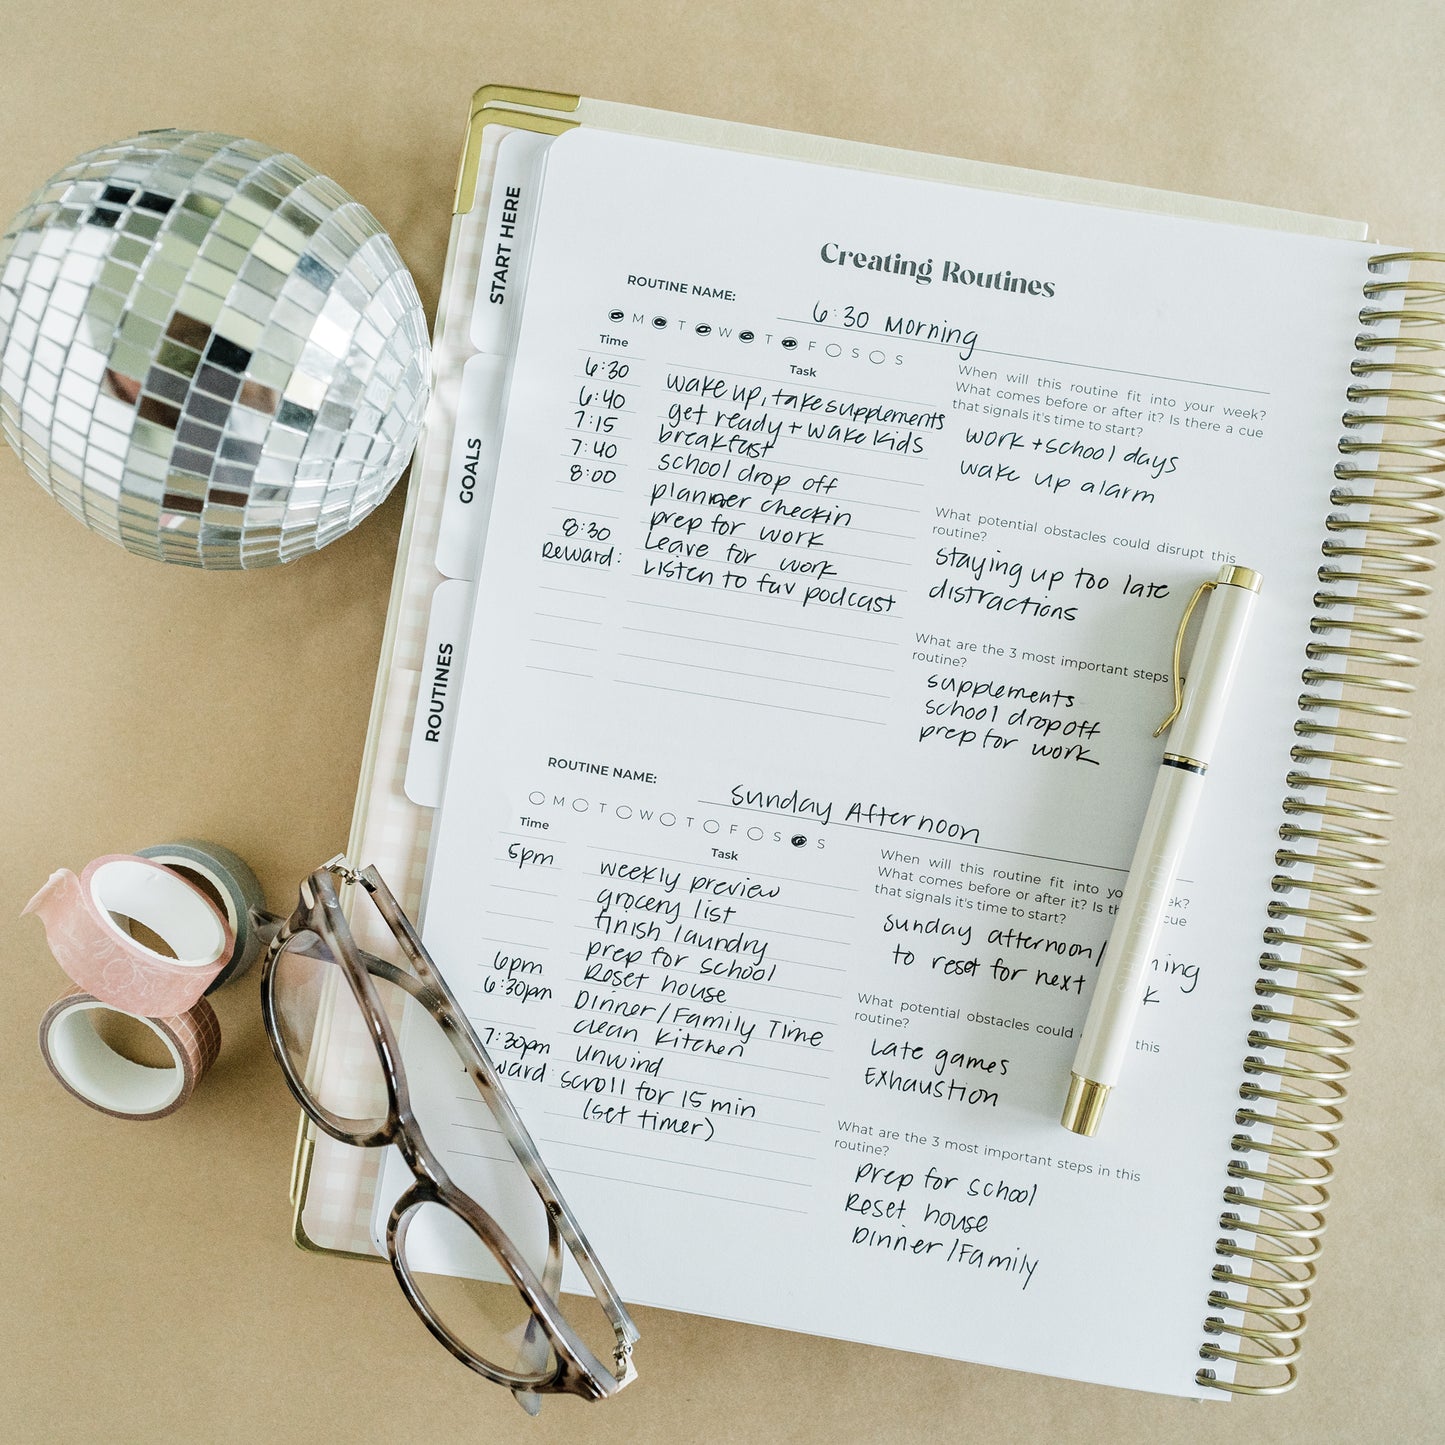 START HERE
GOALS
ROUTINES
Creating Routines
ROUTINE NAME: 6:30 Morning
M T W T F S S
Time Task
6:30 wake up, take supplements
6:40 get ready + wake kids
7:15 breakfast
7:40 school drop off
8:00 planner checkin
prep for work
8:30 Leave for work
Reward: Listen to fav podcast
When will this routine fit into your week?
What comes before or after it? Is there a cue
that signals it's time to start?
work + school days
wake up alarm
What potential obstacles could disrupt this
routine?
staying up too late
distractions
What are the 3 most important steps in
routine?
supplements
school drop off
prep for work
ROUTINE NAME: Sunday Afternoon
M T W T F S S
Time Task
5pm weekly preview
grocery list
finish laundry
prep for school
6pm Reset house
6:30pm Dinner/Family Time
clean kitchen
7:30pm unwind
ward: scroll for 15 min
(set timer)
When will this routine fit into yo ek?
What comes before or after it? Is th cue
that signals it's time to start?
Sunday afternoon/ ning
to reset for next k
What potential obstacles could this
routine?
Late games
Exhaustion
What are the 3 most important steps in this
routine?
prep for school
Reset house
Dinner/Family